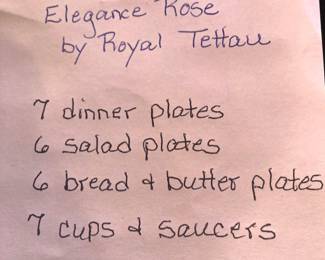 Elegance Rose
by Royal Tettau
7 dinner plates
6 salad plates
6 bread & butter plates
7 cups & saucers